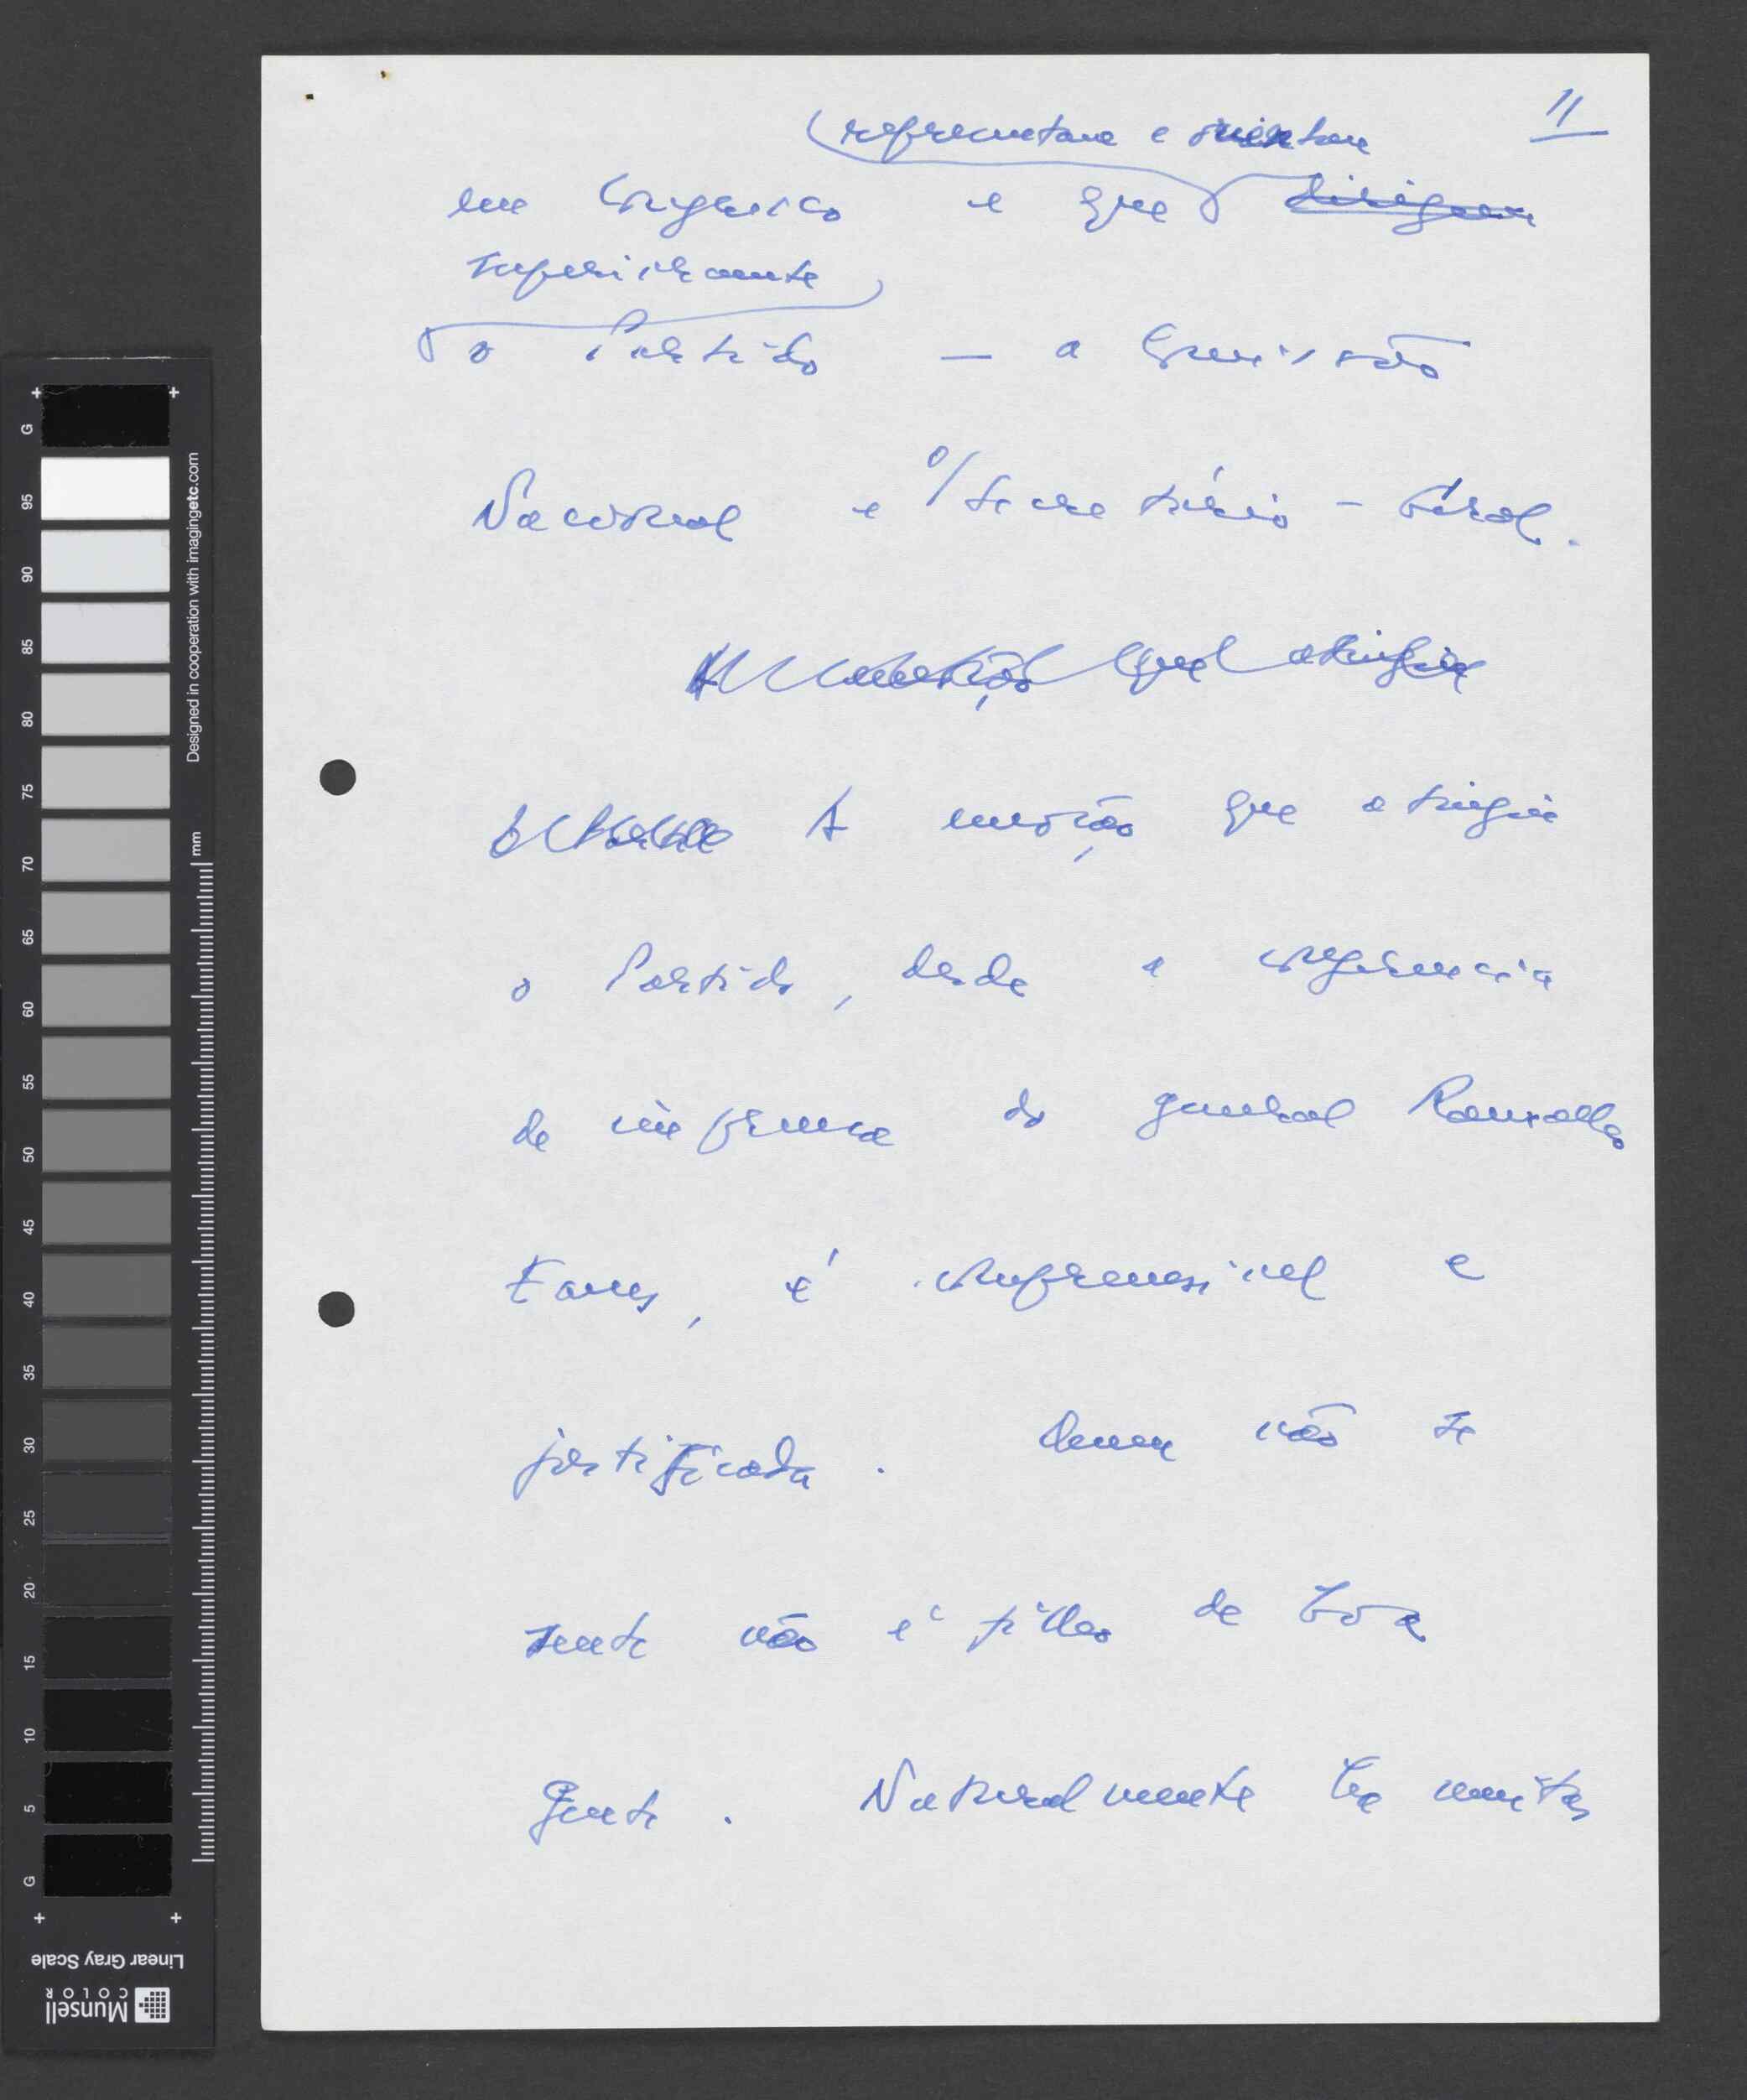 11
representam e orientam
em Congresso e que dirigem
superiormente
o Partido — a Comissão
Nacional e o Secretário-Geral.
A emoção que atingiu
A emoção que atingiu
o Partido, desde a conferência
de imprensa do general Ramalho
Eanes, é compreensível e
justificada. Quem não se
sente não é filho de boa
gente. Naturalmente há muitas
G 95 90 85 80 75 70 65 60 55 50 45 40 35 30 25 20 15 10 5 G
mm
Designed in cooperation with imagingetc.com
Linear Gray Scale
Munsell
COLOR